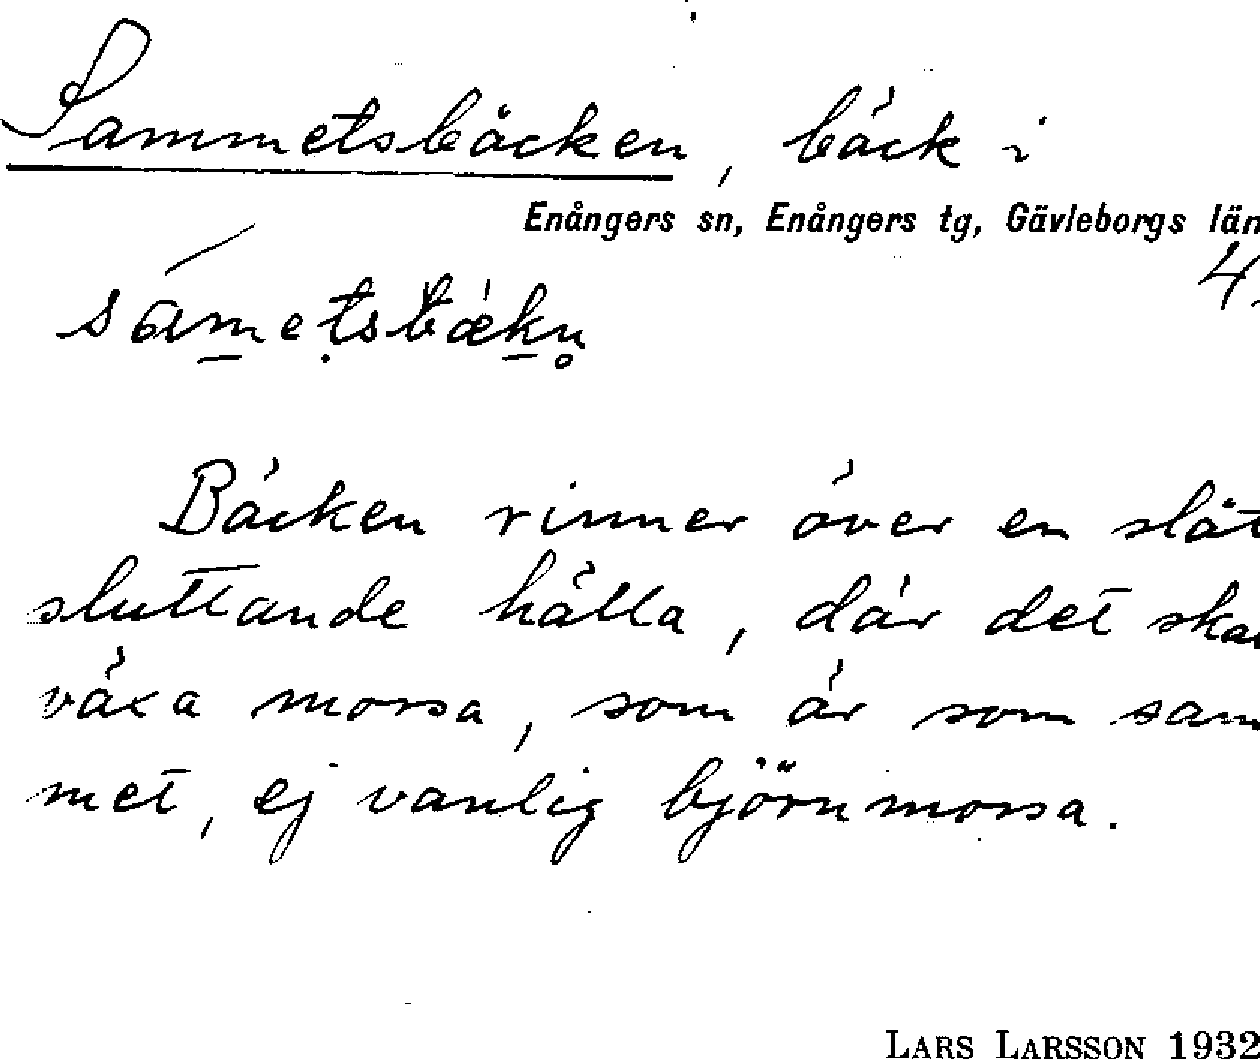 Sammetsbäcken, bäck i
Enångers sn, Enångers tg, Gävleborgs län
4.
sàmetsbækn̥
Bäcken rinner över en slät
sluttande hälla, där det skal
växa mossa, som är som sam
met, ej vanlig björnmossa.
LARS LARSSON 1932